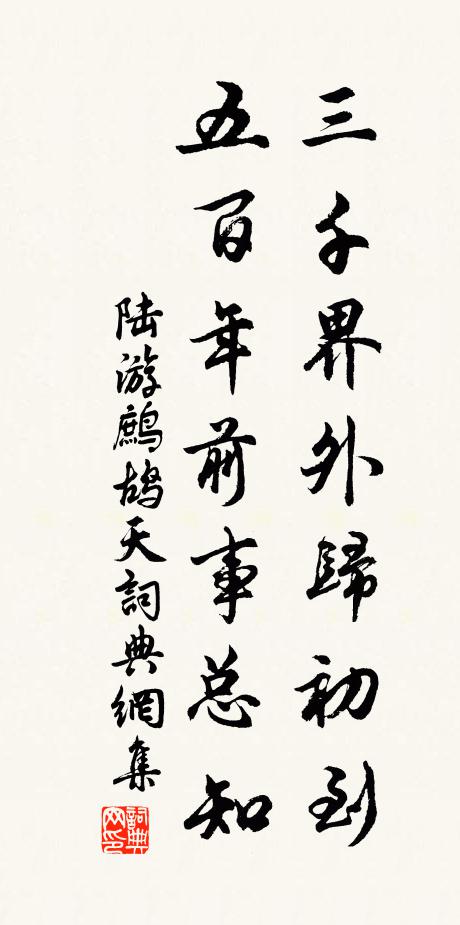 三千界外歸初到
五百年前事总知
陆游鹧鸪天詞典網集
詞典网印